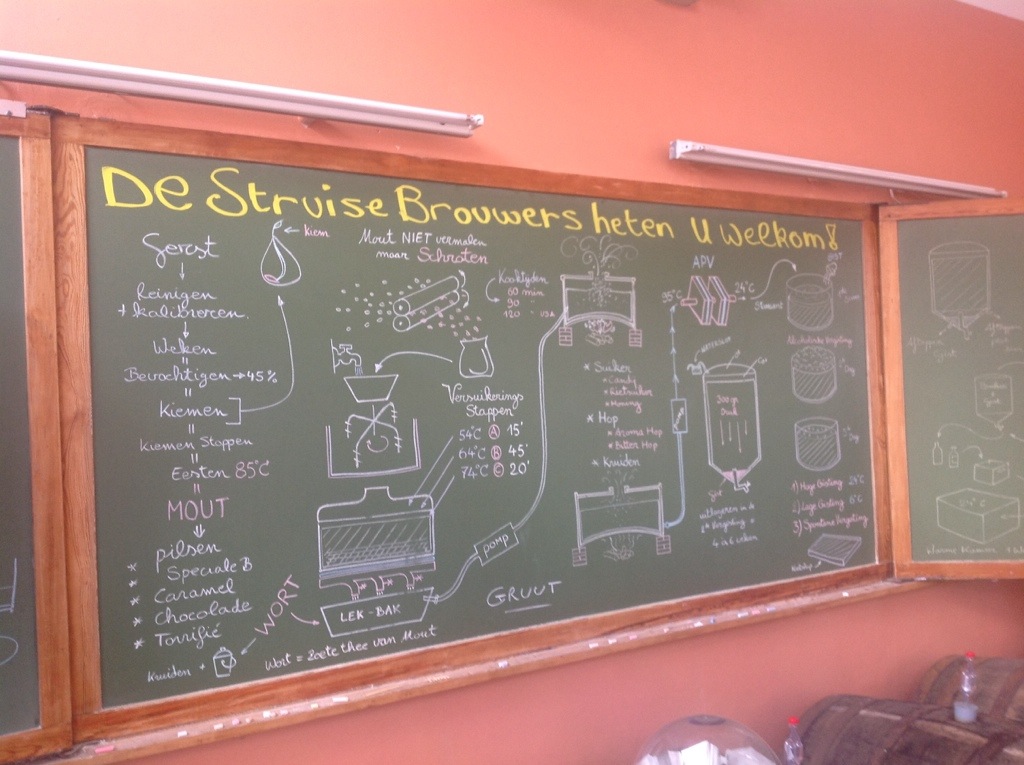 De Struise Brouwers heten U welkom!
Gerst
Reinigen
+ kalibreren
Weken
Bevochtigen → 45%
Kiemen
kiemen stoppen
Eesten 85°C
MOUT
pilsen
* Speciale B
* Caramel
* Chocolade
* Torrifié
Kruiden +
Kiem
Mout NIET vermalen
maar Schroten
Versuikerings
Stappen
54°C A 15'
64°C B 45'
74°C C 20'
WORT
LEK-BAK
Wort = Zoete thee van Mout
pomp
GRUUT
Kooktijden
60 min
90
120 - USA
* Suiker
* Candy
* Rietsuiker
* Honing
* Hop
* Aroma Hop
* Bitter Hop
* Kruiden
APV
95°C
24°C
300 gr
Druk
gist
4 à 6 weken
Alcoholische Vergisting
1) Hoge Gisting
2) Lage Gisting
3) Spontane Vergisting